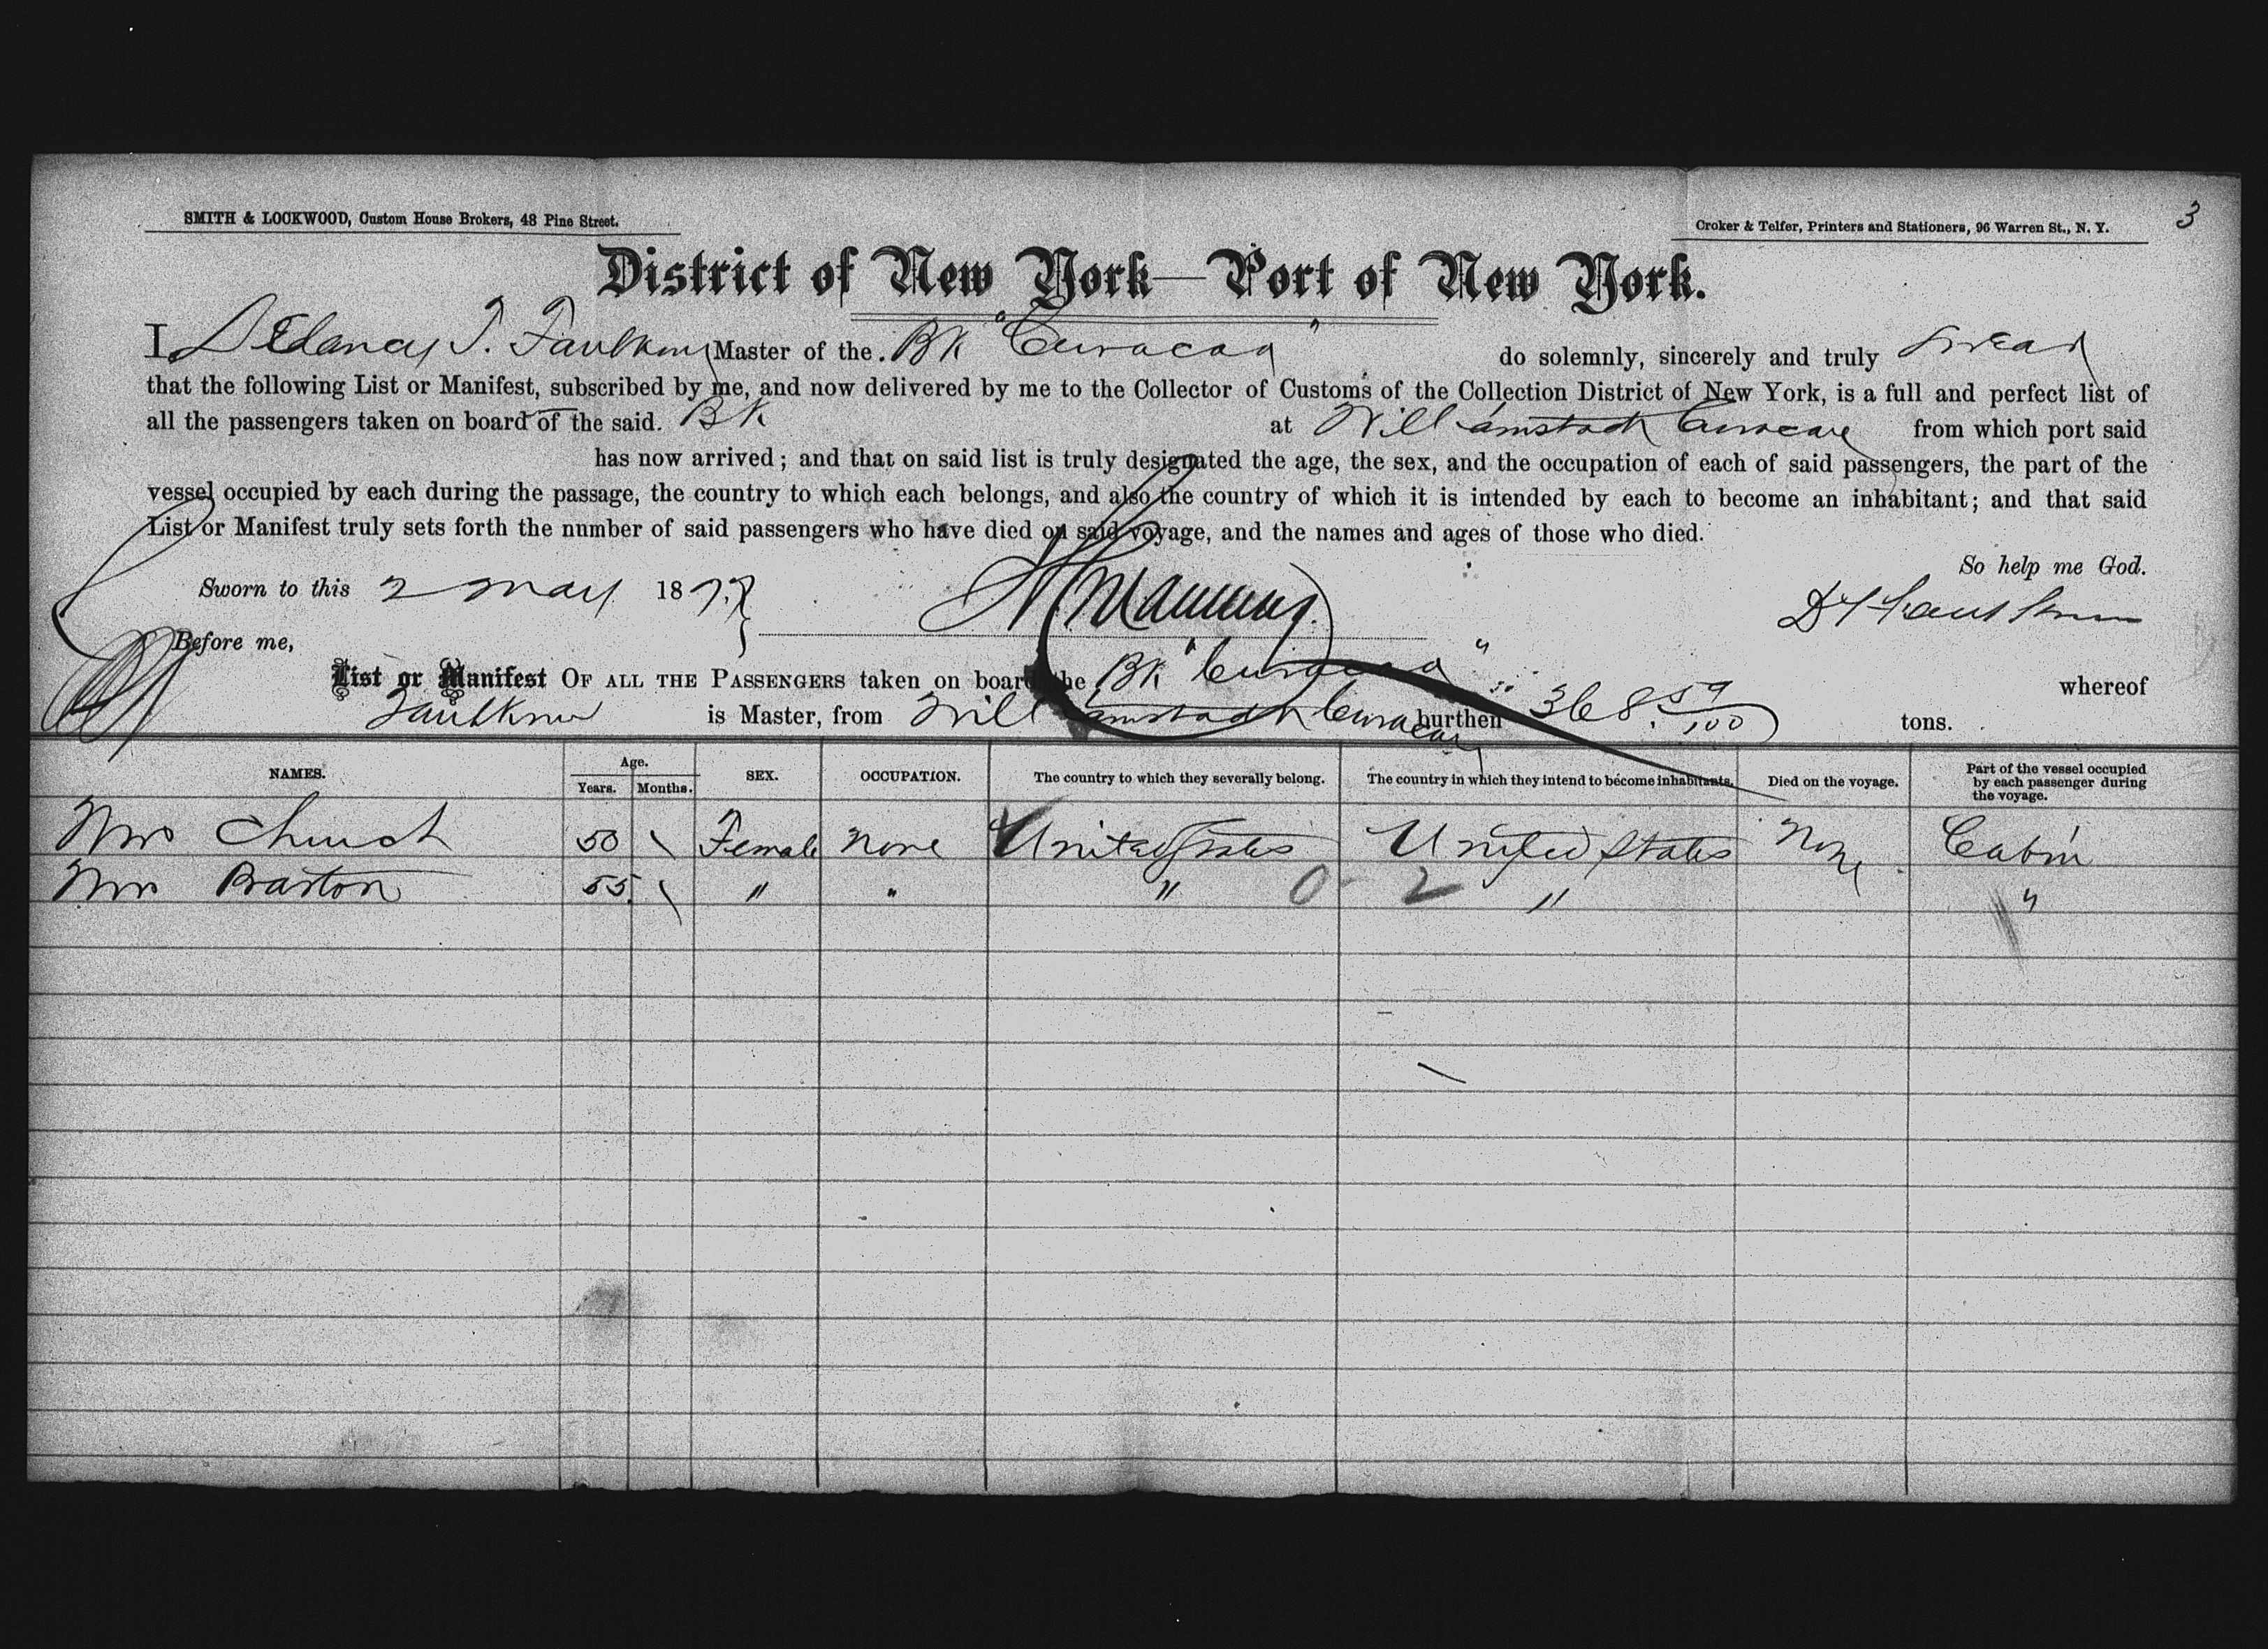 SMITH & LOCKWOOD, Custom House Brokers, 48 Pine Street.
Croker & Telfer, Printers and Stationers, 96 Warren St., N. Y.
3
District of New York—Port of New York.
I, Delancy T. Faulkner Master of the Bk "Curacao" do solemnly, sincerely and truly swear
that the following List or Manifest, subscribed by me, and now delivered by me to the Collector of Customs of the Collection District of New York, is a full and perfect list of
all the passengers taken on board of the said. Bk at Williamstadt Curacao from which port said
has now arrived; and that on said list is truly designated the age, the sex, and the occupation of each of said passengers, the part of the
vessel occupied by each during the passage, the country to which each belongs, and also the country of which it is intended by each to become an inhabitant; and that said
List or Manifest truly sets forth the number of said passengers who have died on said voyage, and the names and ages of those who died.
So help me God.
Sworn to this 2 May 1877
Manning
D T Faulkner
Before me,
List or Manifest OF ALL THE PASSENGERS taken on board the Bk "Curacao" whereof
Faulkner is Master, from Williamstadt Curacao burthen 368 59/100 tons.
NAMES. Age. Years. Months. SEX. OCCUPATION. The country to which they severally belong. The country in which they intend to become inhabitants. Died on the voyage. Part of the vessel occupied by each passenger during the voyage.
Mrs Church 50 \ Female None United States United States None Cabin
Mrs Barton 55 \ " " " 0 2 " "